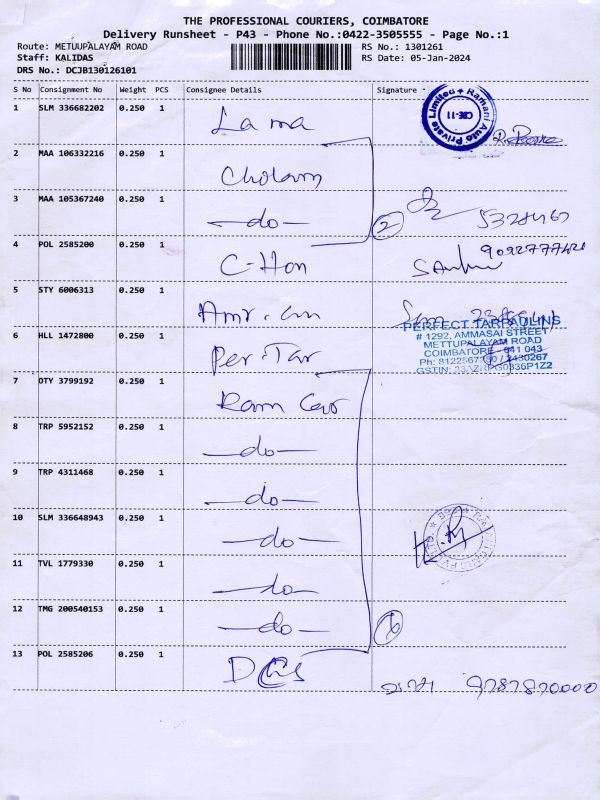 THE PROFESSIONAL COURIERS, COIMBATORE
Delivery Runsheet - P43 - Phone No.:0422-3505555 - Page No.:1
Route: METUUPALAYAM ROAD RS No.: 1301261
Staff: KALIDAS RS Date: 05-Jan-2024
DRS No.: DCJB130126101
S No Consignment No Weight PCS Consignee Details Signature
1 SLM 336682202 0.250 1
Ramani Auto Private Limited ★ CBE-11
2 MAA 106332216 0.250 1 Cholam
3 MAA 105367240 0.250 1 —do— 2
4 POL 2585200 0.250 1 C-Hon 9092777421
5 STY 6006313 0.250 1
6 HLL 1472800 0.250 1 Per.Tar
PERFECT TARPAULINS
# 1292, AMMASAI STREET
METTUPALAYAM ROAD
COIMBATORE - 641 043
7 OTY 3799192 0.250 1 Ram Car
8 TRP 5952152 0.250 1 —do—
9 TRP 4311468 0.250 1 —do—
10 SLM 336648943 0.250 1 —do—
11 TVL 1779330 0.250 1 —do—
12 TMG 200540153 0.250 1 —do— 6
13 POL 2585206 0.250 1